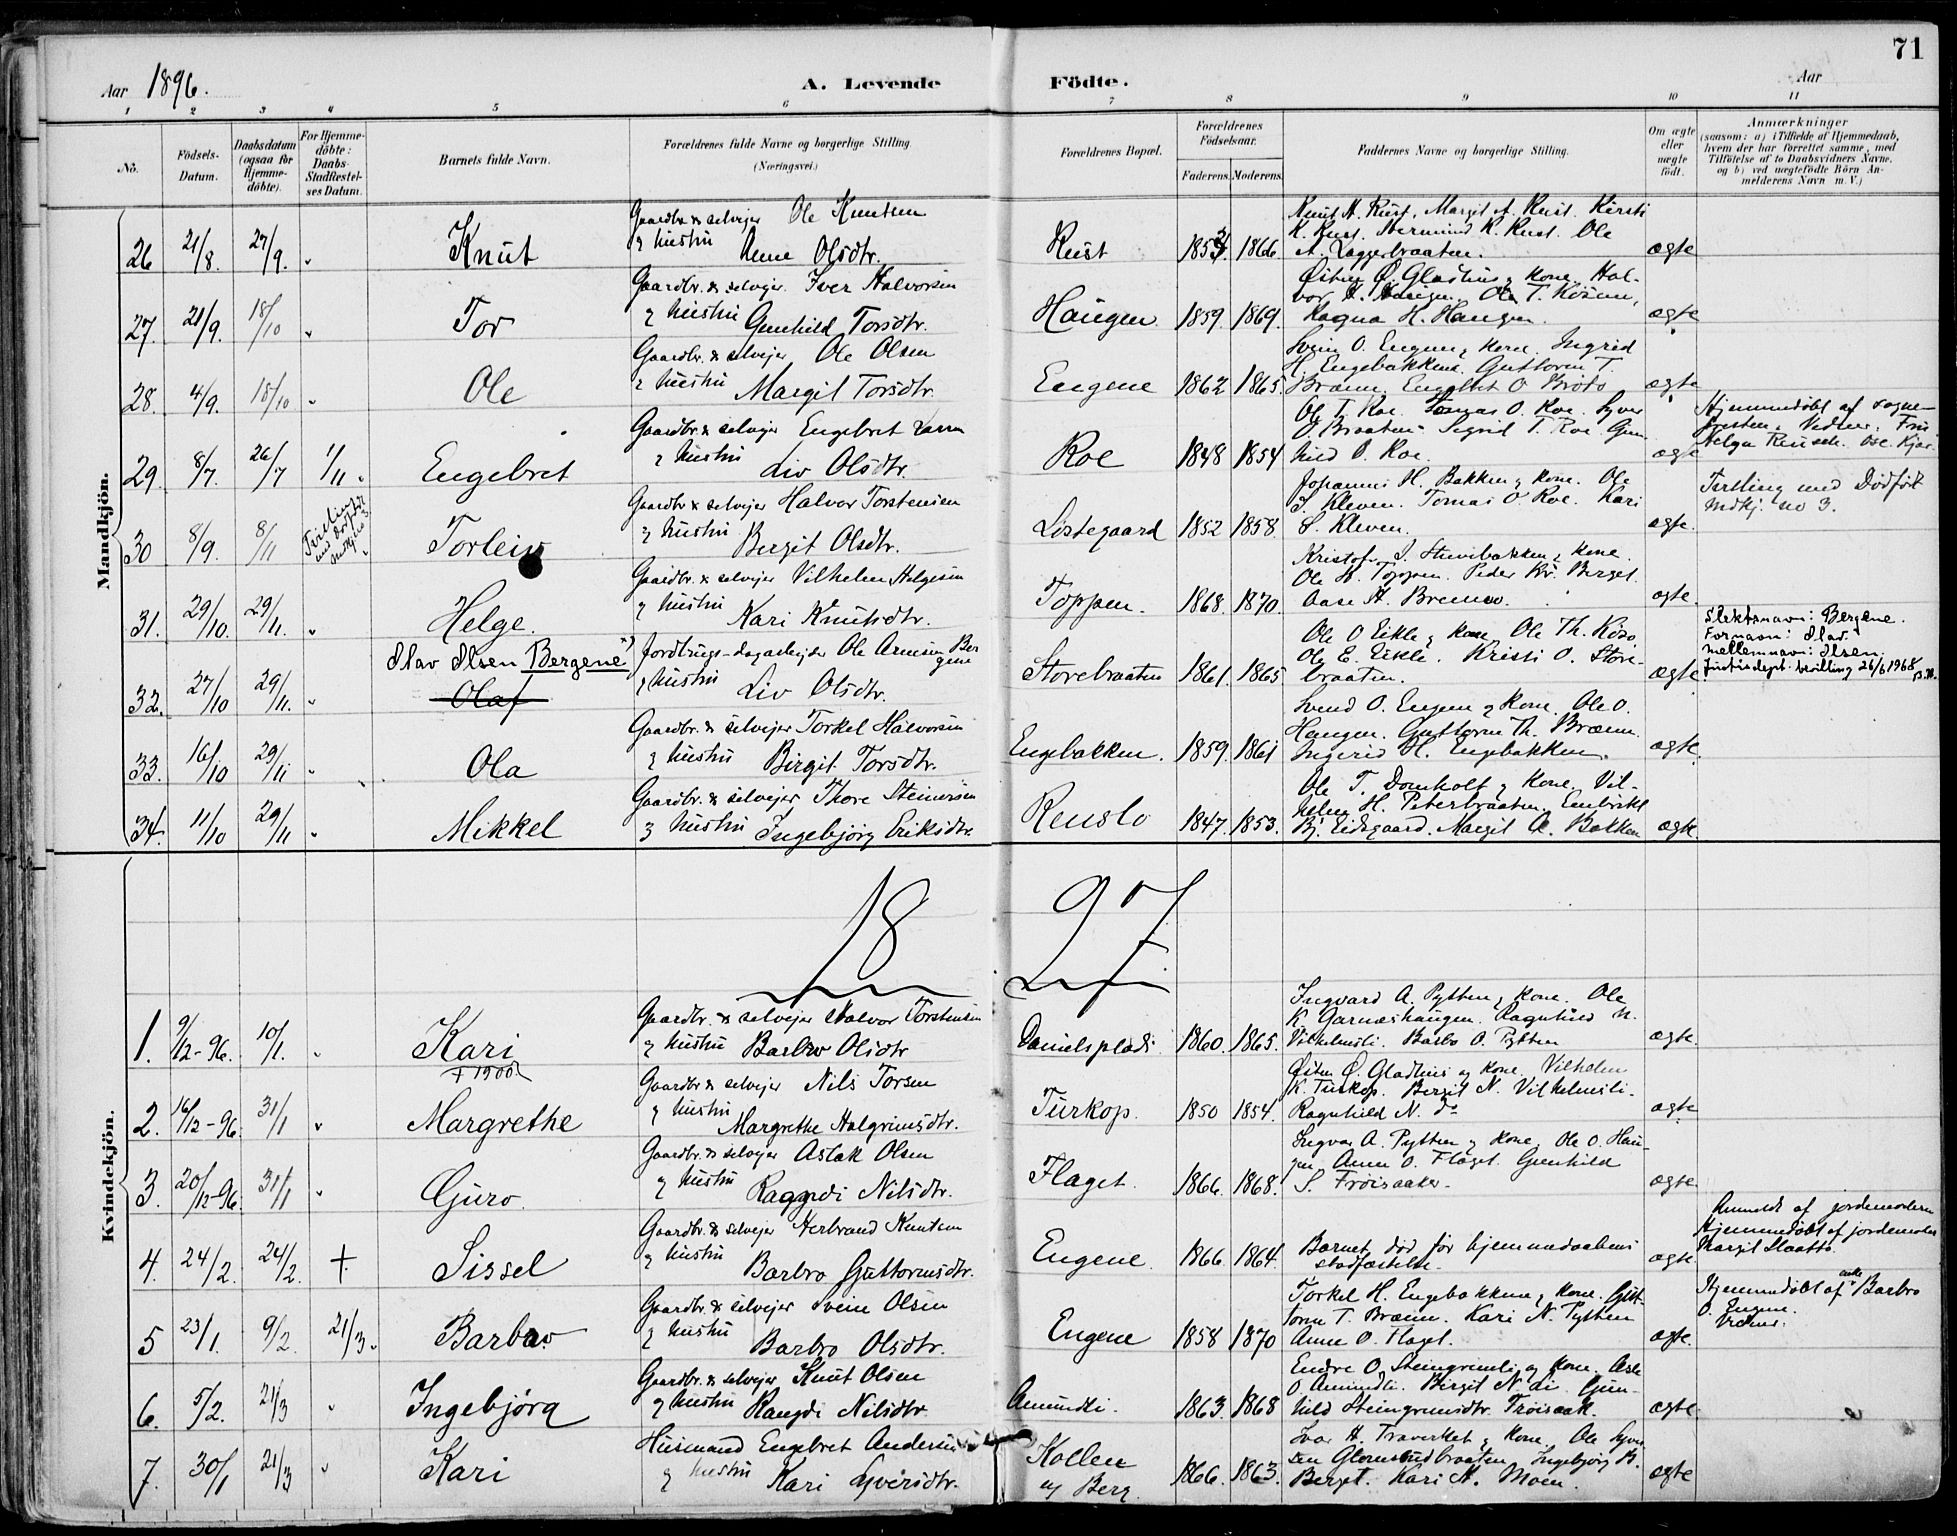 71
Aar 1896.
A. Levende Födte.
Aar
1 2 3 4 5 6 7 8 9 10 11
No.
Födsels-Datum.
Daabsdatum (ogsaa for Hjemme-döbte).
For Hjemme-döbte: Daabs-Stadfæstel-ses Datum.
Barnets fulde Navn.
Forældrenes fulde Navne og borgerlige Stilling. (Næringsvei.)
Forældrenes Bopæl.
Forældrenes Födselsaar.
Faderens. Moderens.
Faddernes Navne og borgerlige Stilling.
Om ægte eller uægte födt.
Anmærkninger
(saasom: a) i Tilfælde af Hjemmedaab, hvem der har forrettet samme, med Tilföielse af to Daabsvidners Navne. og b) ved uægtefödte Börn An-melderens Navn m. V.)
Mandkjön.
26 21/8. 27/9. " Knut Gaardbr. & selvejer Ole Knutsen
& hustru Anne Olsdtr. Rust 1854 1866 Knut A. Rust, Margit A. Rust. Kirsti
K. Rust. K. Rust. Ole
A. ægte
27. 21/9. 18/10 " Tor Gaardbr. & selvejer. Iver Halvorsen
& hustru Gunhild Torsdtr. Haugen 1859 1869. Østen Ø. Gladhus & kone. Hal-
vor Haugen. Ole T.
Ragna H. Haugen. ægte
28. 4/9. 18/10 " Ole Gaardbr. & selvejer Ole Olsen
& hustru Margit Torsdtr. Eugene 1862 1865. Svein O. Eugene & kone. Ingrid
H. Engebakken. Guttorm T.
Brænn. Engebret O Bröto ægte
29. 8/7. 26/7 1/11 " Engebret Gaardbr. & selvejer Engebret Larsen
& hustru Liv Olsdtr. Roe 1848 1854 Ole T. Roe. Tomas O. Roe. Syver
O. Braaten. Sigrid T. Roe. Gun-
hild O. Roe. ægte
Hjemmedöbt af sogne-
presten. Vidner. Fru
Helga Ole Kjær.
30 8/9. 8/11 Tvilling
med dödfödt
mdkj. no 3. Torleiv Gaardbr. & selvejer Halvor Torstensen
& hustru Bergit Olsdtr. Lostegaard 1852 1858. Johannes H. Bakken & kone. Ole
S. Kleven. Tomas O. Roe. Kari
S. Kleven. ægte.
Tvilling med Dödföt
mdkj. no 3.
31. 29/10. 29/11. " Helge. Gaardbr. & selvejer Vilhelm Helgesen
& hustru Kari Knutsdtr. Toppen. 1868. 1870. Kristofer & kone.
Ole K. Toppen. Peder Kr. Berget.
Aase H. ægte.
32. 27/10 29/11. " Olav Olsen Bergene
Olaf Jordbrugs-dagarbejder Ole Arnesen Ber
gene
& hustru Liv Olsdtr. Storebraaten 1861. 1865 Ole O Eikle & kone. Ole Th.
Ole E. Eikle. Kristi O. Store-
braaten. ægte
Slektsnavn: Bergene.
Fornavn: Olav.
mellemnavn: Olsen.
Justisdept. bevilling 26/6 1968
33. 16/10 29/11 " Ola Gaardbr. & selvejer Torkel Halvorsen
& hustru Birgit Torsdtr. Engebakken. 1859. 1861 Svend O. Eugene & kone. Ole O.
Haugen. Guttorm Th. Brænn.
Ingerid H. Engebakken ægte.
34. 11/10 29/11 " Mikkel Gaardbr. & selvejer Thore Steinersen
& hustru Ingebjörg Eriksdtr. Renslo 1847. 1853. Ole T. Domholt & kone. Vil-
helm H. Peterbraaten. Embrikt
Bj. Eidsgaard. Margit A. Bakken ægte.
18 97
Kvindekjön.
1. 9/12-96. 10/1. " Kari
+ 1900 Gaardbr. & selvejer Halvor Torstensen
& hustru Barbro Olsdtr Danielsplads 1860. 1865. Ingvard A. Pytten & kone. Ole
K. Garnaashaugen. Ragnhild N.
Vilhelmsli. Barbo O. Pytten ægte.
2. 16/12-96. 31/1 " Margrethe Gaardbr. & selvejer Nils Torsen
& hustru Margrethe Halgrimsdtr. Turkop. 1850 1854. Østen Ø. Gladhus og kone. Vilhelm
K. Turkop. Bergit N. Vilhelmsli.
Ragnhild N. do ægte
3. 20/12-96. 31/1 " Guro. Gaardbr. & selvejer Aslak Olsen
& hustru Ragndi Nilsdtr. Flaget. 1866. 1868. Ingvar A. Pytten & kone. Ole O. Hau-
gen. Anne O. Flaget. Gunhild
S. Fröisaaker. ægte
4. 24/2. 24/2. + Sissel Gaardbr. & selvejer Herbrand Knutsen
& hustru Barbro Guttormsdtr. Eugene. 1866 1864. Barnet död för hjemmedaabens
stadfæstelse. ægte
Anmeldt af jordemoderen
Hjemmedöbt af jordemoder
Margit Slaatto.
5 23/1. 9/2. 21/3. Barbro Gaardbr. & selvejer Svein Olsen
& hustru Barbro Olsdtr. Eugene 1858 1870 Torkel H. Engebakken & kone. Gut-
torm T. Bræen. Kari N. Pytten
Anne O. Flaget. ægte.
Hjemmedöbt af enke Barbro
O. Eugene.
6. 5/2. 21/3 " Ingebjörg Gaardbr. & selvejer Knut Olsen
& hustru Rangdi Nilsdtr. Amundli. 1863. 1868 Endre O. Steingrimli og kone. Asle
O. Amundli. Birgit N. Li. Gun-
hild Steingrimsdtr. Fröisaak. ægte.
7. 30/1 21/3 " Kari Husmand Engebret Andersen
& hustru Kari Syversdtr. Kollen
af Berg. 1866. 1863. Ivar H. Traverket & kone. Ole Syver-
sen Glomsrudbraaten Ingebjörg B.
Berget. Kari A. Moen. ægte